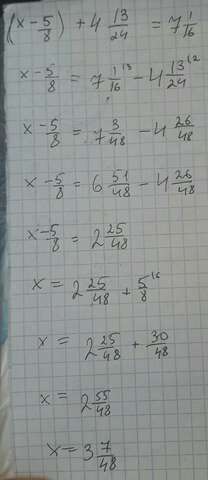 (x - 5/8) + 4 13/24 = 7 1/16
x - 5/8 = 7 1/16 - 4 13/24
x - 5/8 = 7 3/48 - 4 26/48
x - 5/8 = 6 51/48 - 4 26/48
x - 5/8 = 2 25/48
x = 2 25/48 + 5/8
x = 2 25/48 + 30/48
x = 2 55/48
x = 3 7/48